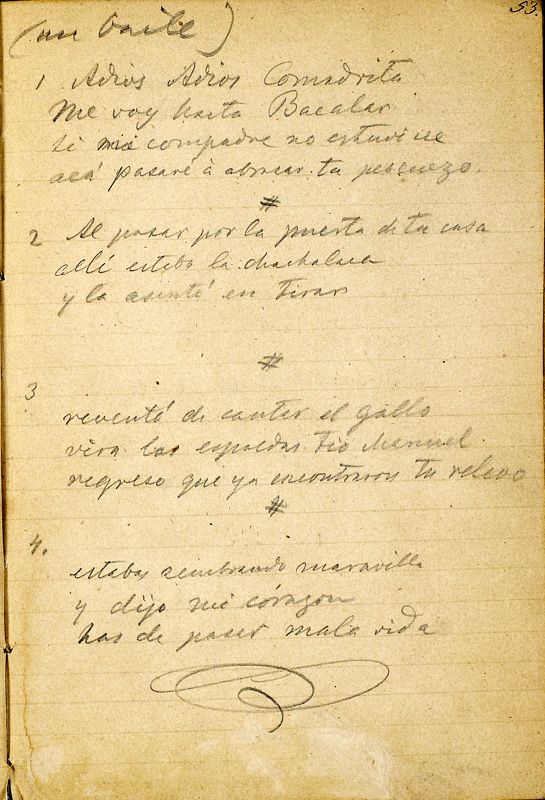 53.
(un baile)
1 Adios Adios Comadrita
Me voy hasta Bacalar
si mi compadre no estuviese
acá pasaré á abrasar tu pescuezo.
#
2 Al pasar por la puerta di tu casa
allí estaba la chachalaca
y la asenté en tirar
#
3
reventó di cantar el gallo
vira las espaldas tio Manuel
regreso que ya encontraron tu relevo
#
4.
estabas sembrando maravilla
y dijo mi córazon
has de pasar mala vida